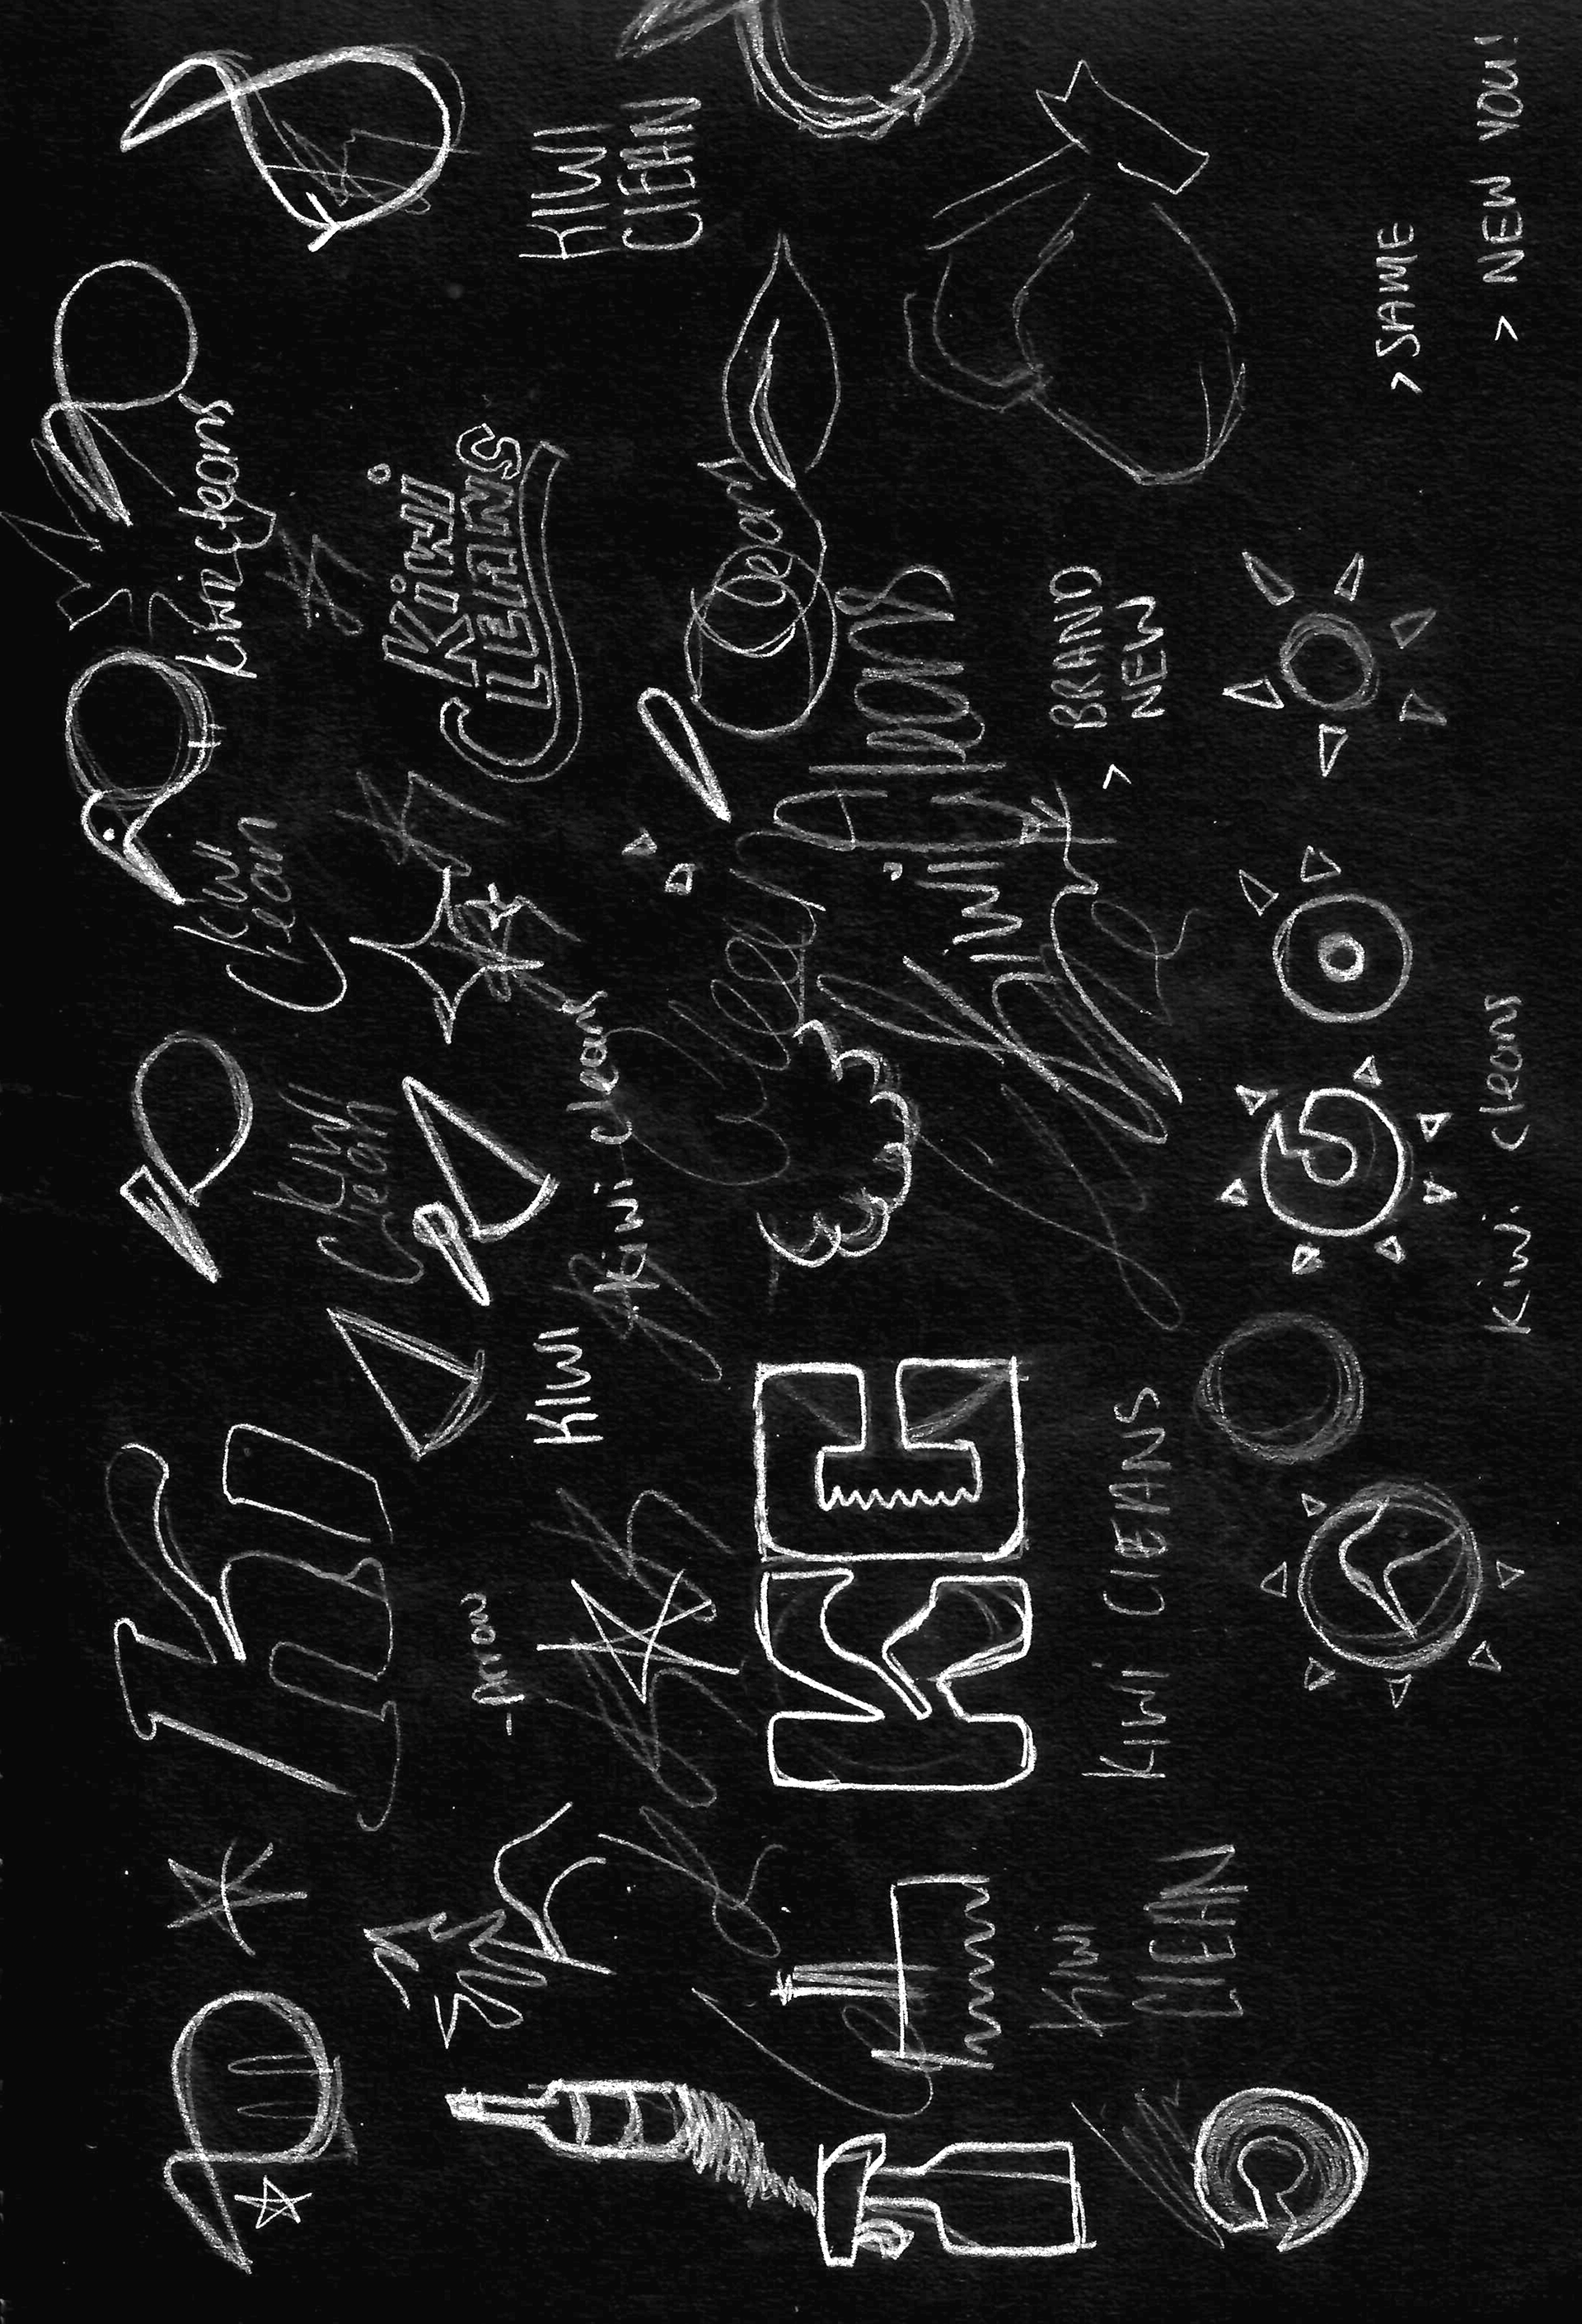 kiwi cleans
Kiwi
Clean
Kiwi
Clean
KIWI
CLEAN
Kiwi
CLEANS
- Arrow
KIWI
Kiwi cleans
Cleans
Clean
Kiwi
Cleans
KC
KIWI CLEANS
KIWI
CLEAN
> BRAND
NEW
> SAME
> NEW YOU!
Kiwi cleans